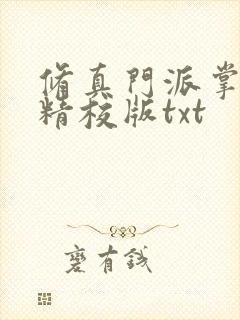 脩真門派掌
精校版txt
蹇有錢